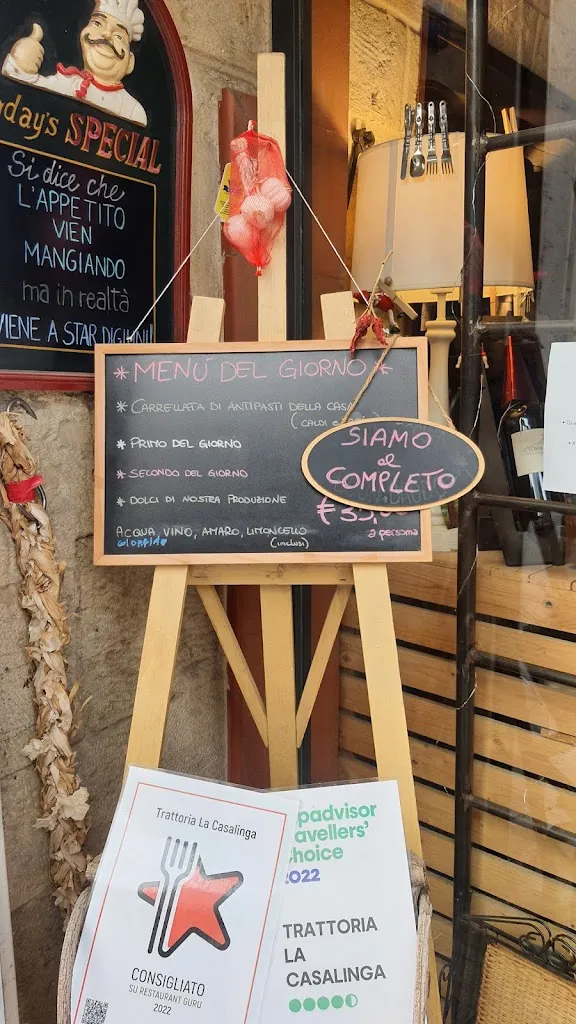 day's SPECIAL
Si dice che
L'APPETITO
VIEN
MANGIANDO
ma in realtà
VIENE A STAR DIGIUNI
* MENÙ DEL GIORNO *
* CARRELLATA DI ANTIPASTI DELLA CASA
(CALDI e
* PRIMO DEL GIORNO
* SECONDO DEL GIORNO
* DOLCI DI NOSTRA PRODUZIONE
€ 35,
ACQUA, VINO, AMARO, LIMONCELLO
(inclusi)
a persona
SIAMO
al
COMPLETO
Trattoria La Casalinga
CONSIGLIATO
SU RESTAURANT GURU
2022
padvisor
avellers'
hoice
2022
TRATTORIA
LA
CASALINGA